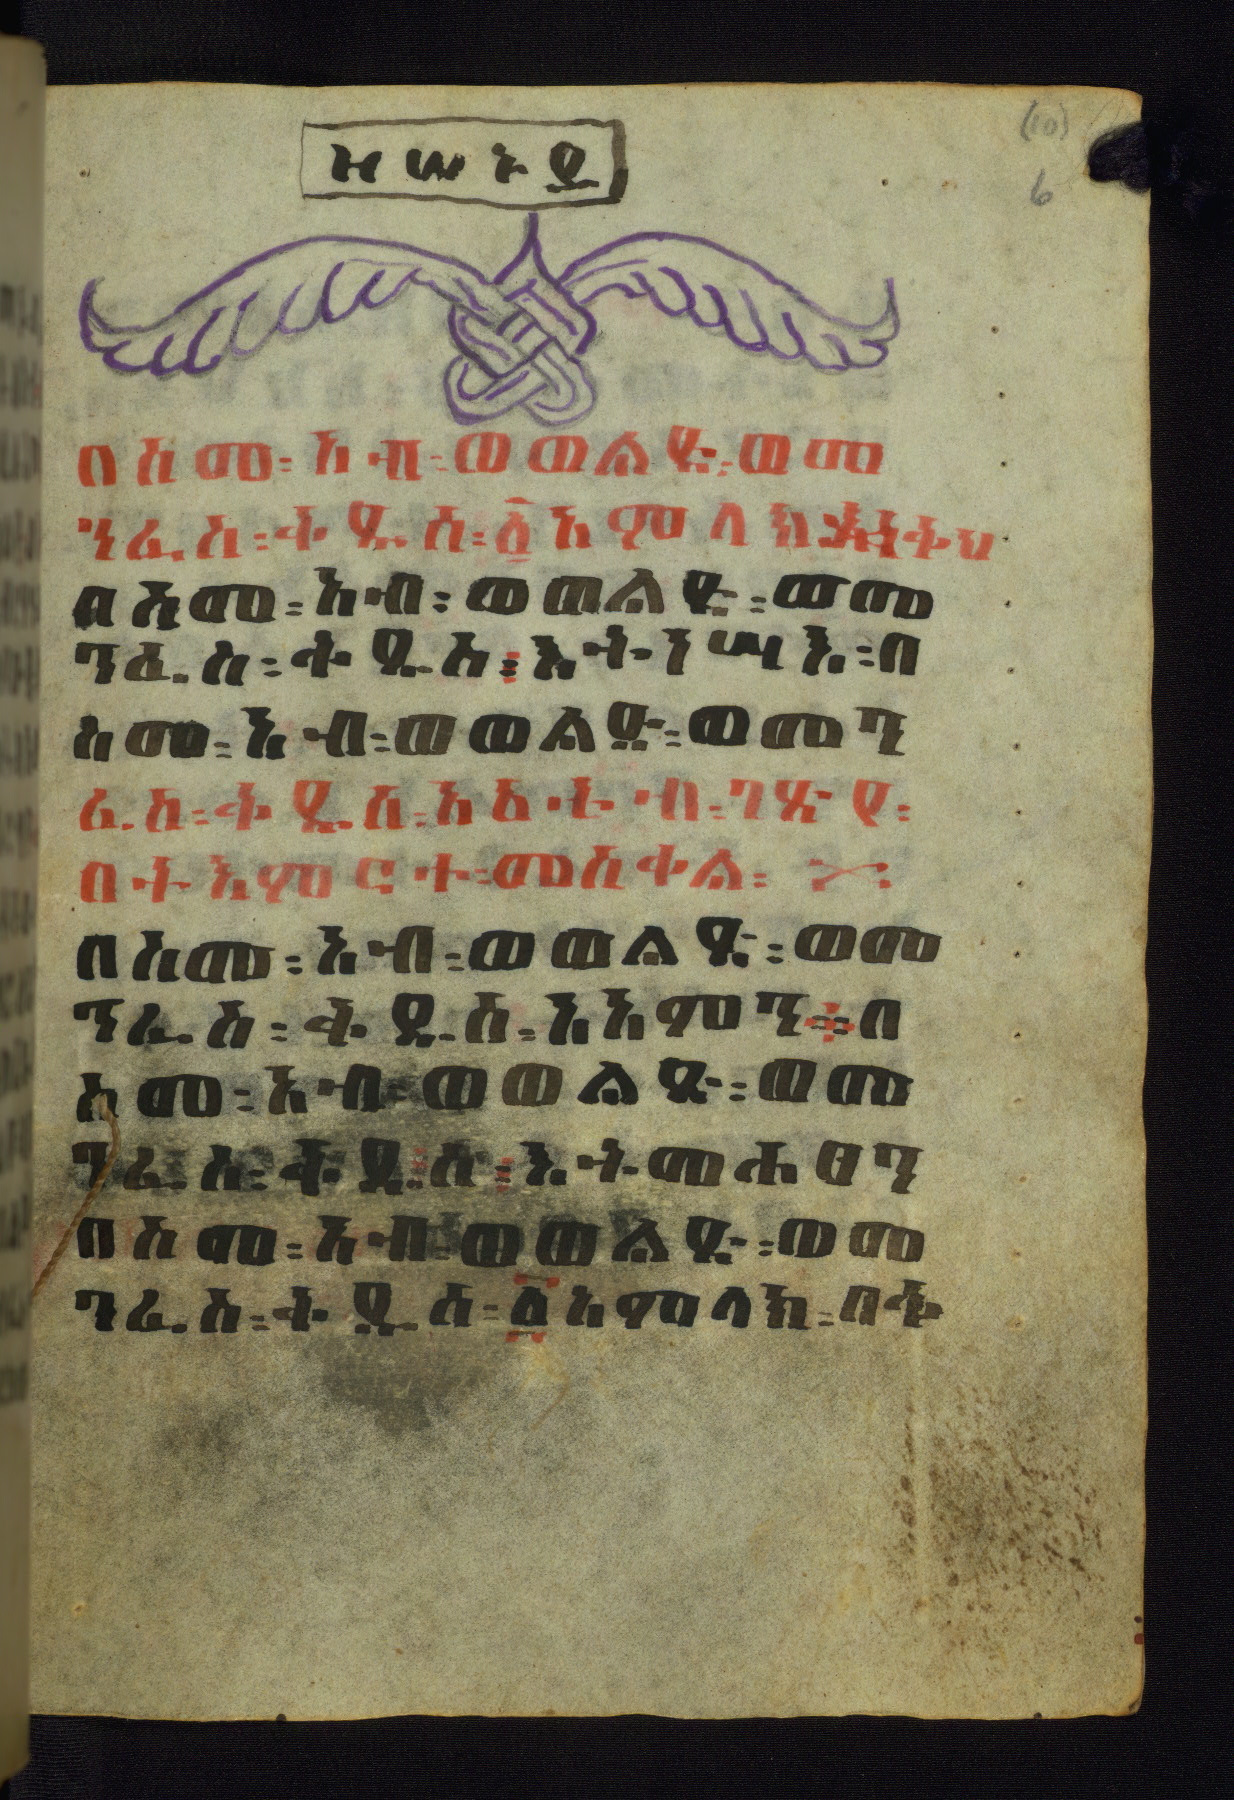 (10)
6
ዘሠኑይ
በስመ፡ አብ፡ ወወልድ፡ ወመ
ንፈስ፡ ቅዱስ፡ ፩አምላክ
በስመ፡ አብ፡ ወወልድ፡ ወመ
ንፈስ፡ ቅዱስ፡ እትነሣእ፡ በ
ስመ፡ አብ፡ ወወልድ፡ ወመን
ፈስ፡ ቅዱስ፡ አአትብ፡ ገጽየ፡
በትእምርተ፡ መስቀል፡
በስመ፡ አብ፡ ወወልድ፡ ወመ
ንፈስ፡ ቅዱስ፡ አአምን፡ በ
ስመ፡ አብ፡ ወወልድ፡ ወመ
ንፈስ፡ ቅዱስ፡ እትመሐፀን
በስመ፡ አብ፡ ወወልድ፡ ወመ
ንፈስ፡ ቅዱስ፡ ፩አምላክ፡